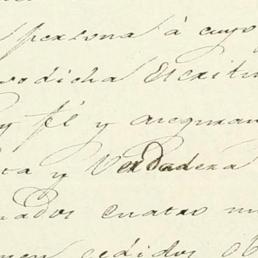 persona á cuyo
odicha Escritu
y fé y asegura
a y Verdadera
ados cuatro m
men cedidos